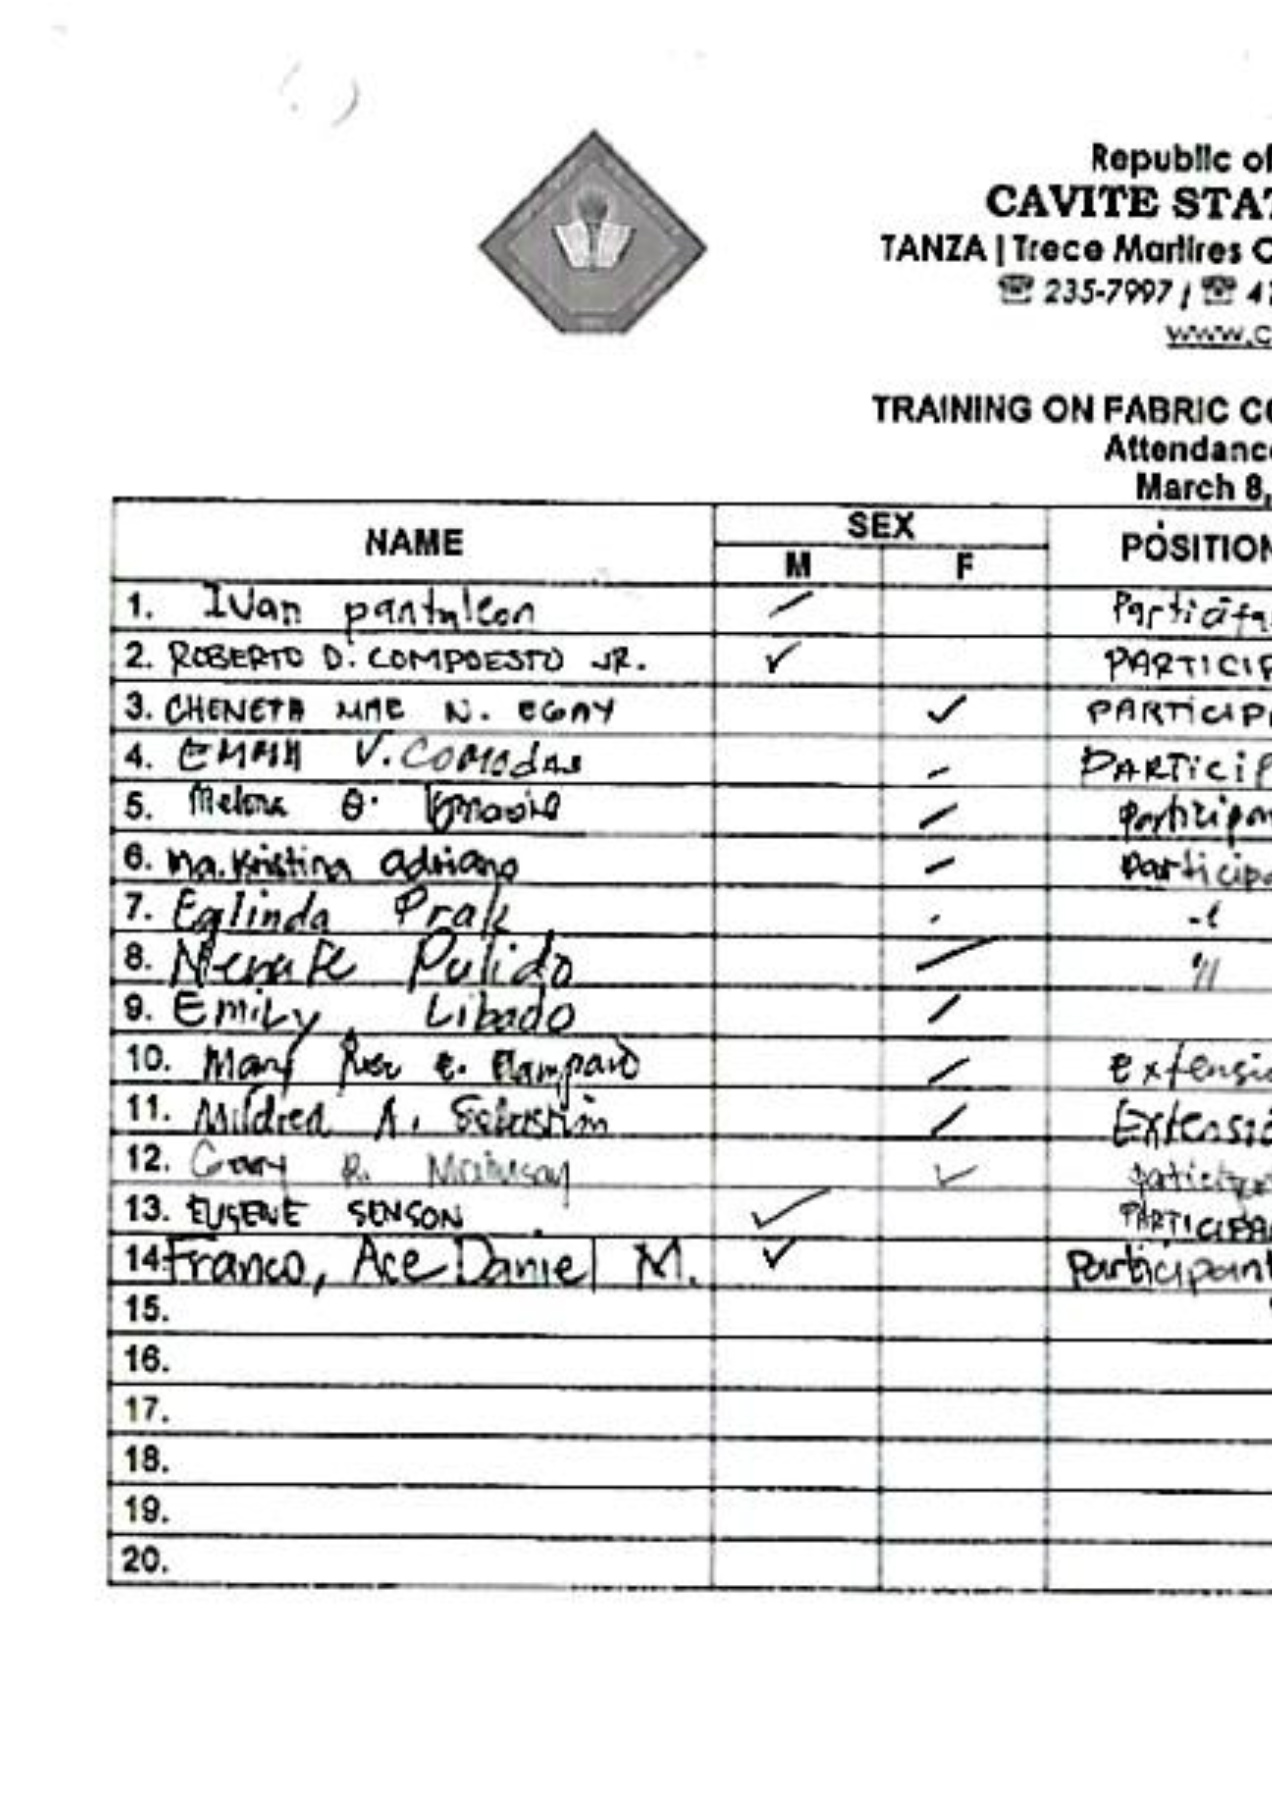 Republic of
CAVITE STAT
TANZA | Trece Martires C
☎ 235-7997 / ☎ 47
www.c
TRAINING ON FABRIC CO
Attendance
March 8,
NAME SEX POSITION
M F
1. Ivan pantaleon Participa
2. ROBERTO D. COMPOESTO JR. PARTICIP
3. CHENETA MAE N. EGAY PARTICIPA
4. EMMA V. COMODAS PARTICIP
5. O. participan
6. Ma. Kristina adriano participa
7. Eglinda
8. Pulido "
9. Emily Libado
10. Mary E. Extensio
11. Mildred A. Sebastian Extensio
12. Gary R.
13. EUGENE SENSON PARTICIPA
14. Franco, Ace Daniel M. Participant
15.
16.
17.
18.
19.
20.